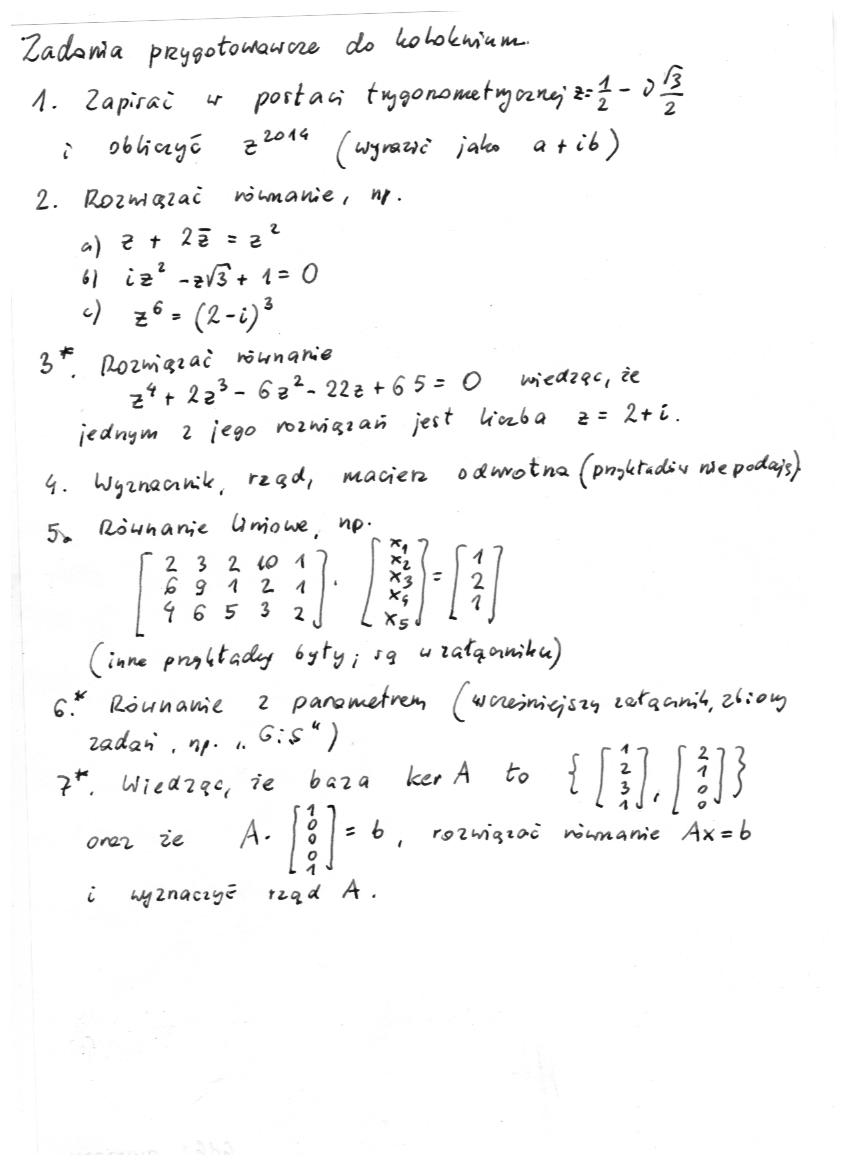 Zadania przygotowawcze do kolokwium.
1. Zapisać w postaci trygonometrycznej z = 1/2 - i √3/2
i obliczyć z^2014 (wyrazić jako a + ib)
2. Rozwiązać równanie, np.
a) z + 2z̄ = z^2
b) iz^2 - z√3 + 1 = 0
c) z^6 = (2-i)^3
3*. Rozwiązać równanie
z^4 + 2z^3 - 6z^2 - 22z + 65 = 0 wiedząc, że
jednym z jego rozwiązań jest liczba z = 2+i.
4. Wyznacznik, rząd, macierz odwrotna (przykładów nie podaję).
5. Równanie liniowe, np.
[2 3 2 10 1; 6 9 1 2 1; 4 6 5 3 2] · [x1; x2; x3; x4; x5] = [1; 2; 1]
(inne przykłady były i są w załączniku)
6.* Równanie z parametrem (wcześniejszy załącznik, zbiory
zadań, np. „GiS")
7*. Wiedząc, że baza ker A to {[1; 2; 3; 1], [2; 1; 0; 0]}
oraz że A · [1; 0; 0; 0; 1] = b, rozwiązać równanie Ax = b
i wyznaczyć rząd A.